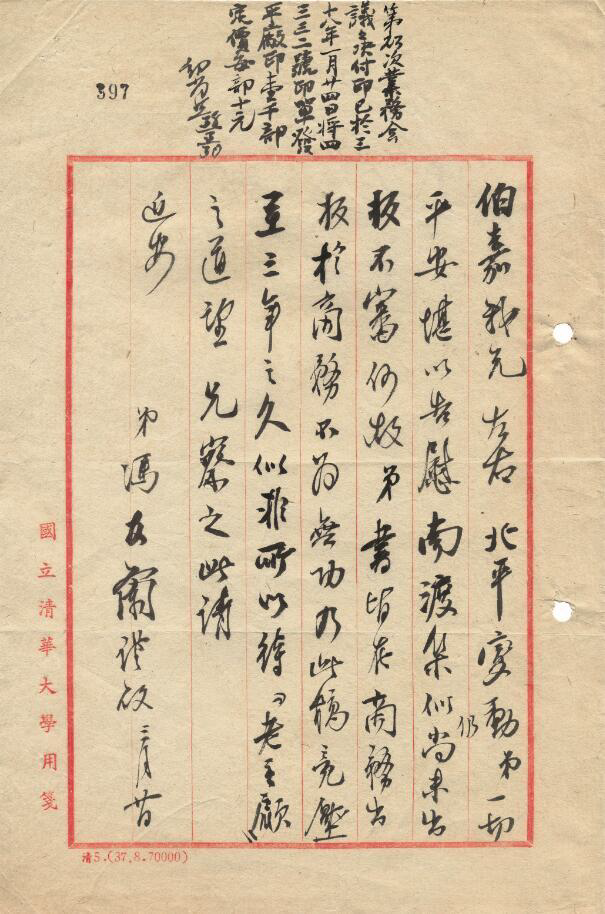 397
第 次業務會
議議決付印已於三
十八年一月廿四日將四
三三二號印單發
平廠印壹千部
定價每部十元
伯嘉我兄左右 北平變動弟一切
平安堪以告慰南渡集似仍尚未出
板不審何故弟書皆在商務出
板於商務不為無功乃此稿竟壓
至三年之久似非所以待“老主顧”
之道望 兄察之此請
近安
弟馮友蘭謹啟 三月廿
國立清華大學用箋
清5.(37.8.70000)